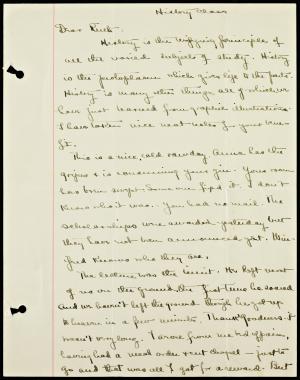 History Class
Dear Ruth:
History is the unifying principle of
all the varied subjects of study. History
is the protoplasm which gives life to the parts.
History is many other things, all of which we
have just learned from graphic illustrations.
I have taken nice neat notes for your
This is a nice, cold day. Anna has the
grippe & is consuming your. Your room
has been swept. Some one did it. I don't
know who it was. You had no mail. The
scholarships were awarded yesterday but
they have not been announced yet. Wini-
fred knows who they are.
The lecture was the limit. He left most
of us on the ground, the first time he soared
and we haven't left the ground though he got up
to heaven in a few minutes. Thank goodness it
wasn't very long. I arose from
having had a neat order next chapel - just to
go and that was all I got for a reward. But